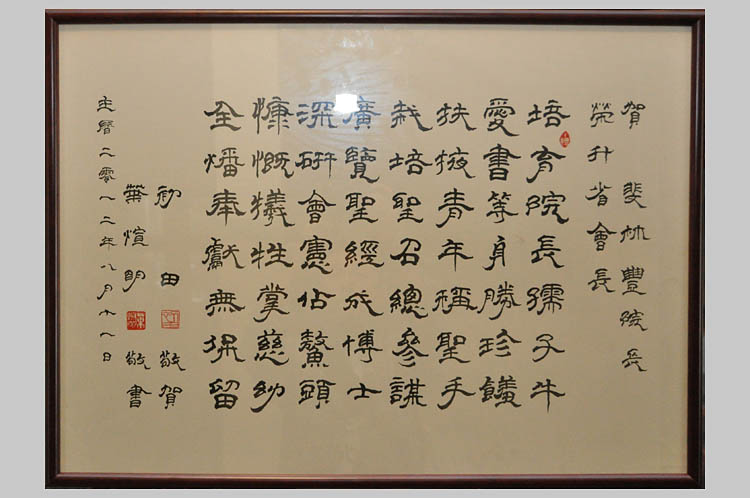 賀 斐林豐院長
榮升省會長
培育院長孺子牛
愛書等身勝珍饈
扶掖青年稱聖手
栽培聖召總參謀
廣覽聖經成博士
深研會憲佔鰲頭
慷慨犧牲掌慈幼
全燔奉獻無保留
初田 敬賀
慎明 敬書
主曆二零一二年八月十一日